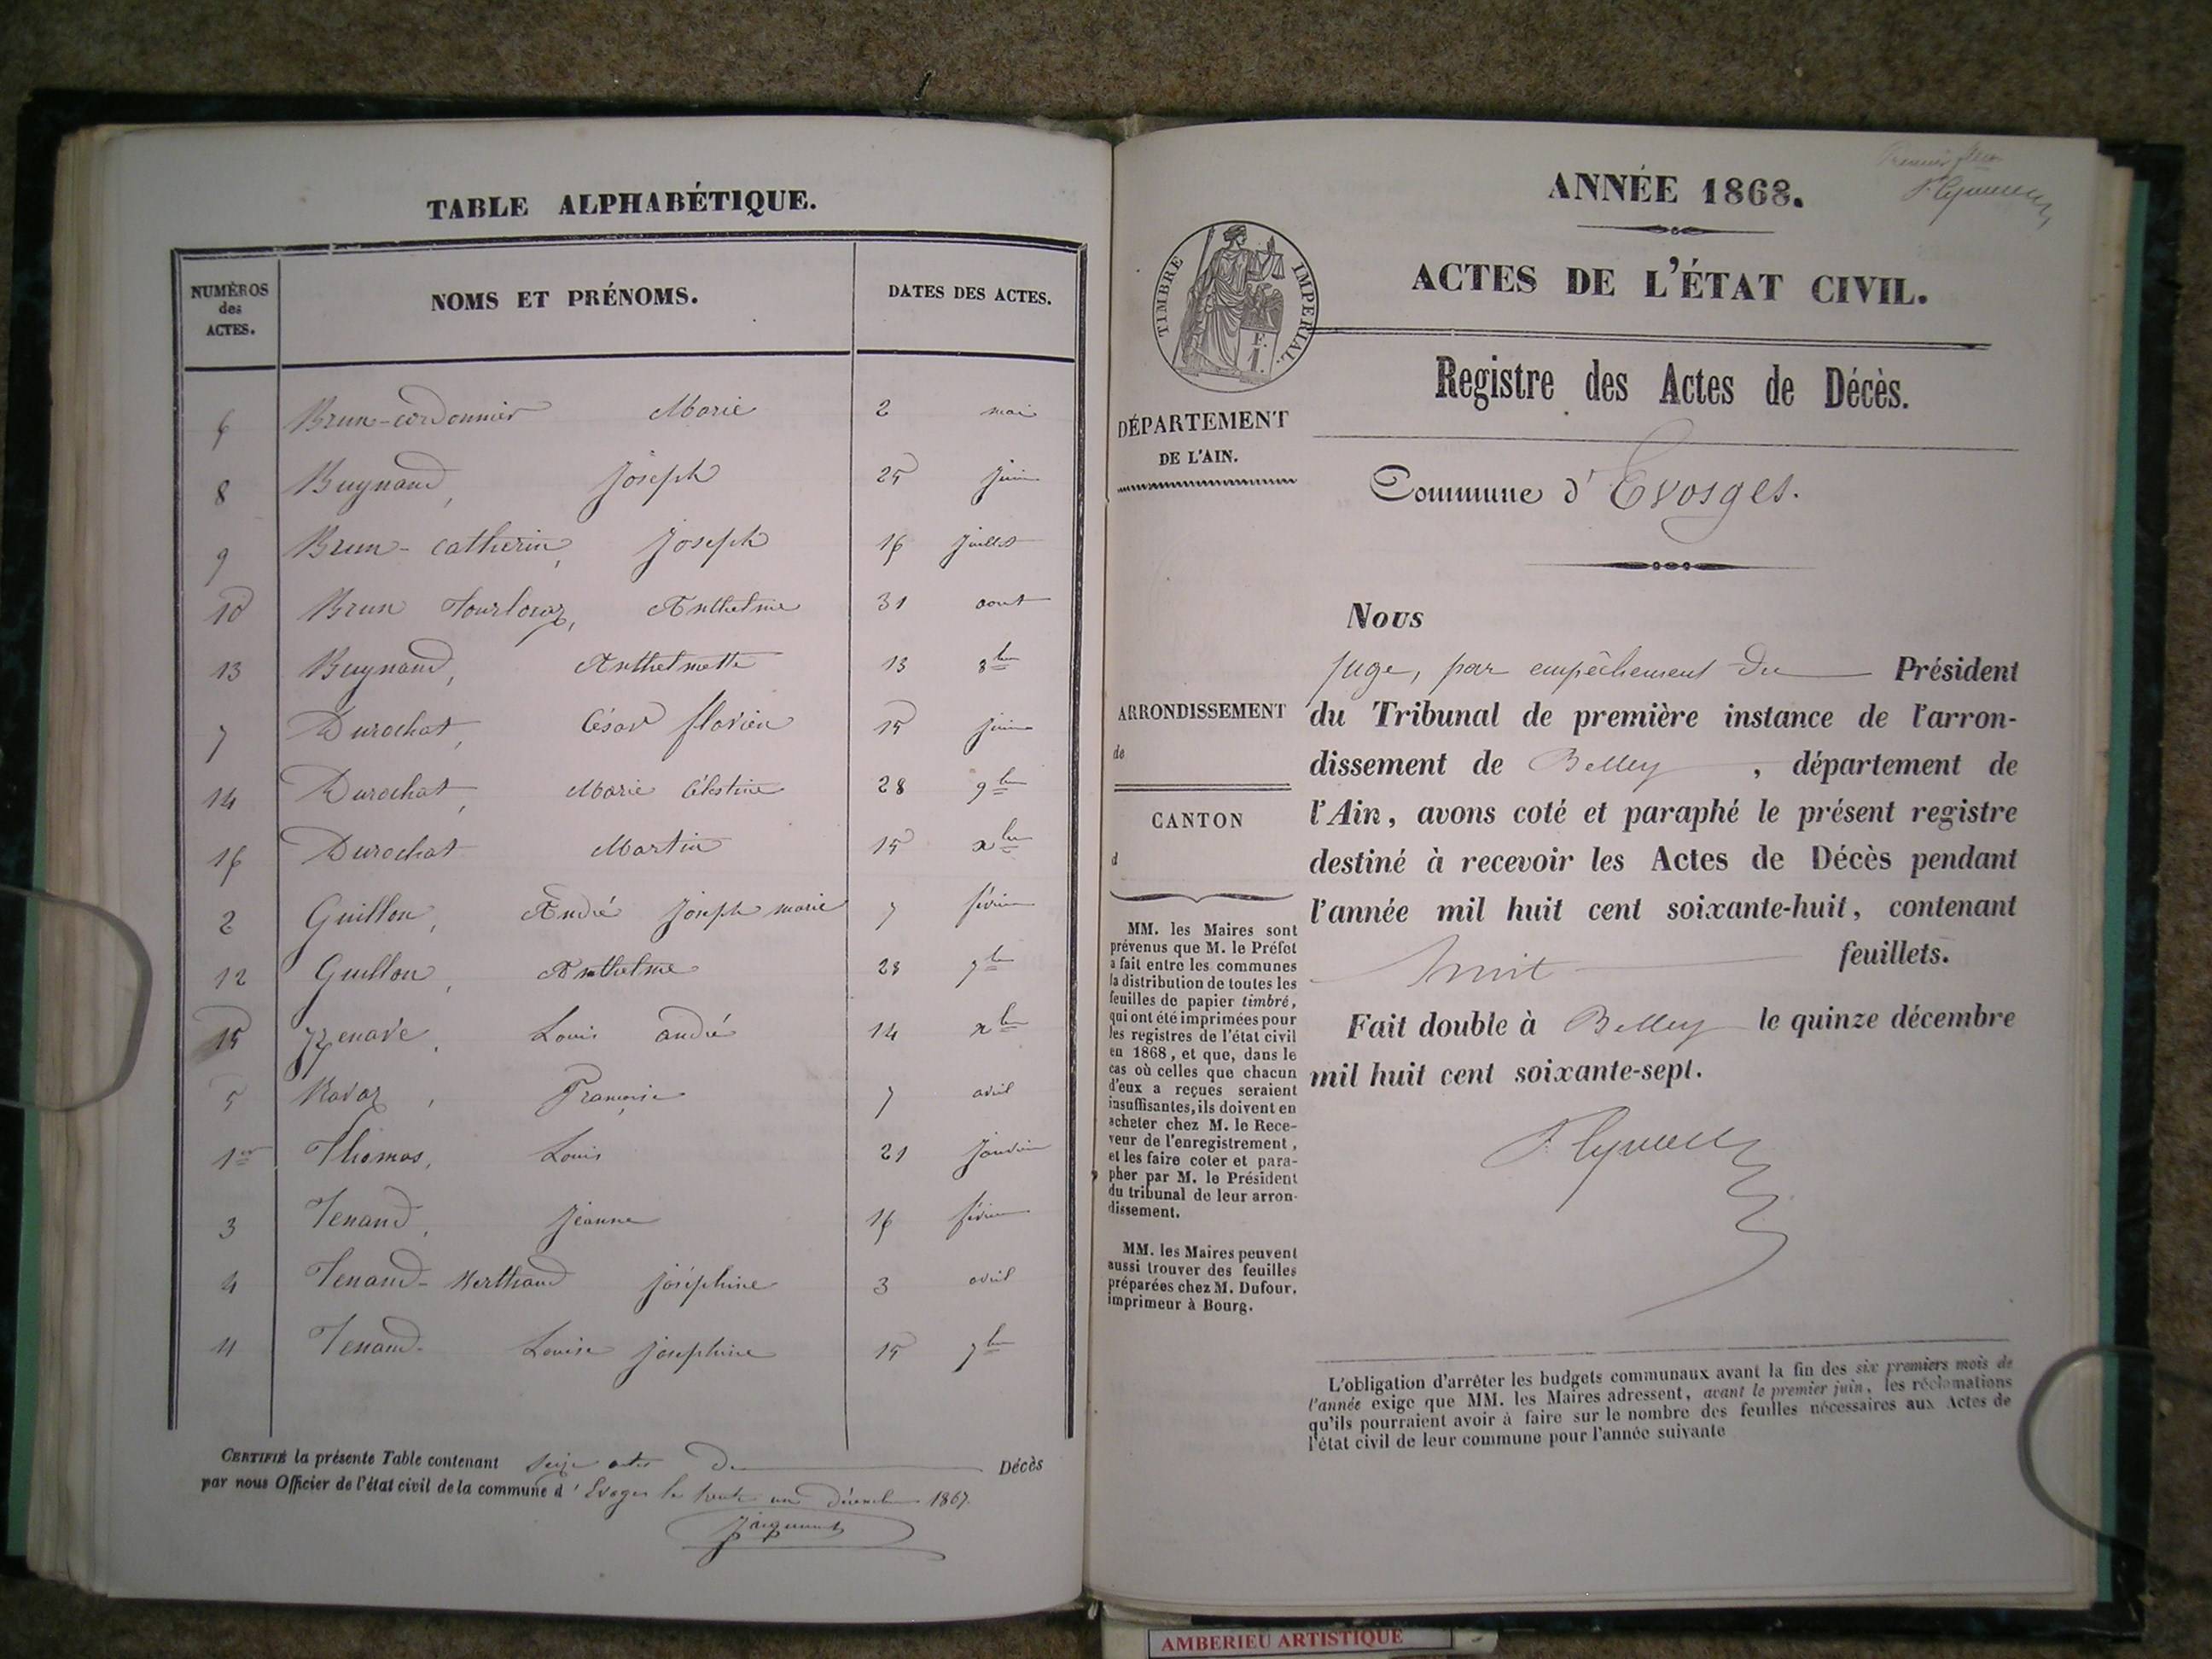 TABLE ALPHABÉTIQUE.
NUMÉROS des ACTES. NOMS ET PRÉNOMS. DATES DES ACTES.
6 Brun-cordonnier Marie 2 mai
8 Buynand, Joseph 25 juin
9 Brun-catherin, Joseph 16 juillet
10 Brun Tourloraz, Anthelme 31 aout
13 Buynand, Anthelmette 13 8bre
7 Durochat, César florien 15 juin
14 Durochat, Marie Célestine 28 9bre
16 Durochat Martin 15 xbre
2 Guillon, André Joseph marie 7 février
12 Guillon, Anthelme 23 7bre
15 Louis andré 14 xbre
5 Ravaz, Françoise 7 avril
1er Thomas, Louis 21 janvier
3 Tenand, Jeanne 16 février
4 Tenand-Berthand joséphine 3 avril
11 Tenand. Louise joséphine 15 7bre
CERTIFIÉ la présente Table contenant seize actes De Décès
par nous Officier de l'état civil de la commune d' Evoges le trente un Décembre 1867.
ANNÉE 1868.
ACTES DE L'ÉTAT CIVIL.
TIMBRE IMPERIAL.
Registre des Actes de Décès.
DÉPARTEMENT
DE L'AIN.
Commune d'Evosges.
ARRONDISSEMENT
de
CANTON
d
MM. les Maires sont
prévenus que M. le Préfet
a fait entre les communes
la distribution de toutes les
feuilles de papier timbré,
qui ont été imprimées pour
les registres de l'état civil
en 1868, et que, dans le
cas où celles que chacun
d'eux a reçues seraient
insuffisantes, ils doivent en
acheter chez M. le Rece-
veur de l'enregistrement,
et les faire coter et para-
pher par M. le Président
du tribunal de leur arron-
dissement.
MM. les Maires peuvent
aussi trouver des feuilles
préparées chez M. Dufour,
imprimeur à Bourg.
Nous
juge, par empêchement du Président
du Tribunal de première instance de l'arron-
dissement de Belley, département de
l'Ain, avons coté et paraphé le présent registre
destiné à recevoir les Actes de Décès pendant
l'année mil huit cent soixante-huit, contenant
huit feuillets.
Fait double à Belley le quinze décembre
mil huit cent soixante-sept.
L'obligation d'arrêter les budgets communaux avant la fin des six premiers mois de
l'année exige que MM. les Maires adressent, avant le premier juin, les réclamations
qu'ils pourraient avoir à faire sur le nombre des feuilles nécessaires aux Actes de
l'état civil de leur commune pour l'année suivante
AMBERIEU ARTISTIQUE